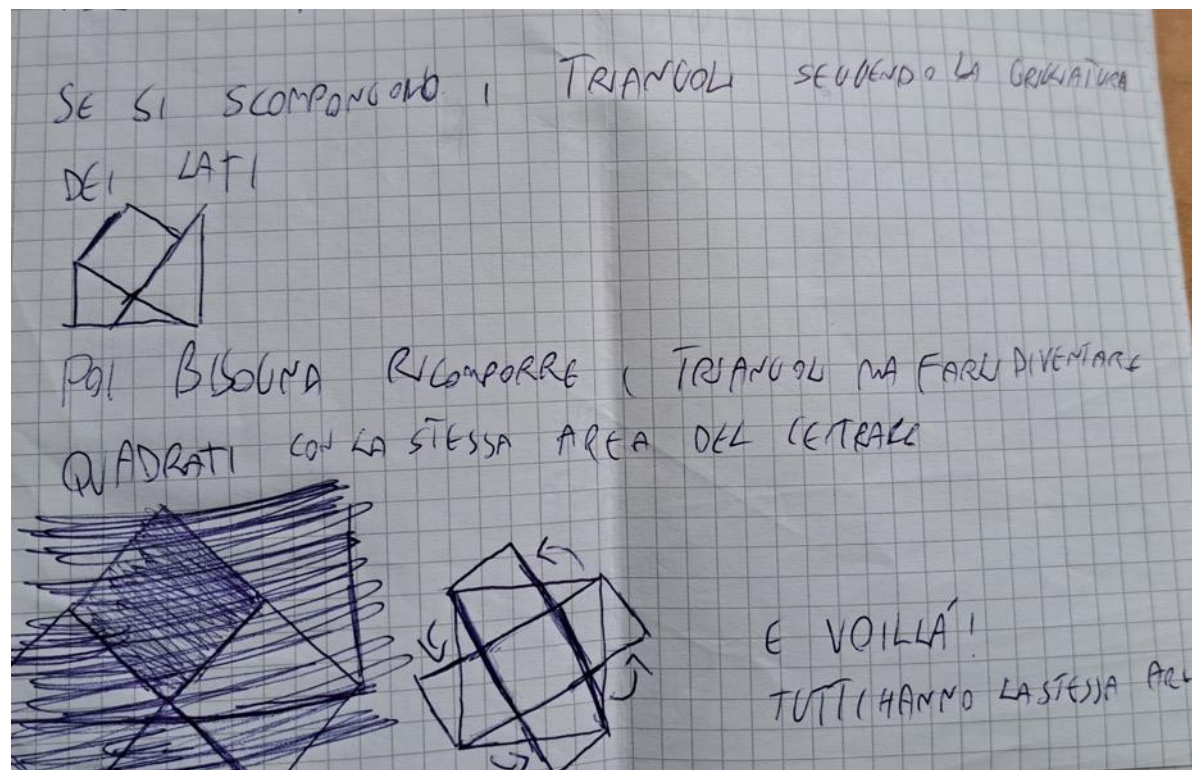 SE SI SCOMPONGONO I TRIANGOLI SEGUENDO LA GRIGLIATURA
DEI LATI
POI BISOGNA RICOMPORRE I TRIANGOLI MA FARLI DIVENTARE
QUADRATI CON LA STESSA AREA DEL CENTRALE
E VOILLÁ!
TUTTI HANNO LA STESSA ARE